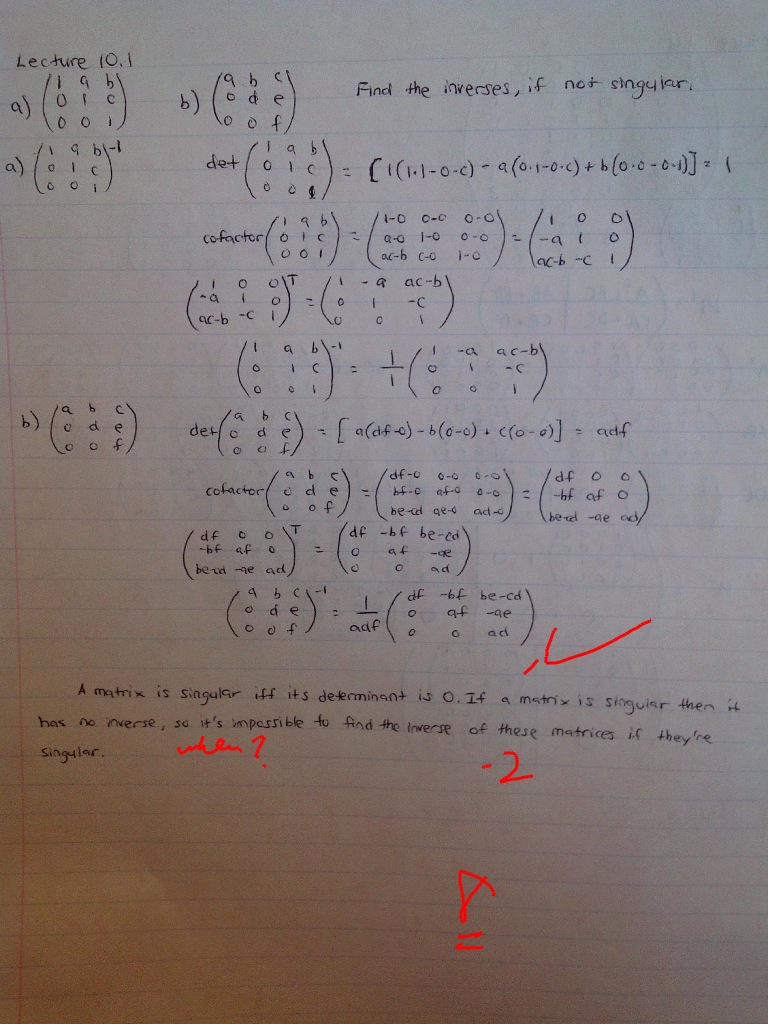 Lecture 10.1
a) (1 a b; 0 1 c; 0 0 1) b) (a b c; 0 d e; 0 0 f) Find the inverses, if not singular.
a) (1 a b; 0 1 c; 0 0 1)^-1 det (1 a b; 0 1 c; 0 0 1) = [1(1·1-0·c) - a(0·1-0·c) + b(0·0-0·1)] = 1
cofactor (1 a b; 0 1 c; 0 0 1) = (1-0 0-0 0-0; a-0 1-0 0-0; ac-b c-0 1-0) = (1 0 0; -a 1 0; ac-b -c 1)
(1 0 0; -a 1 0; ac-b -c 1)^T = (1 -a ac-b; 0 1 -c; 0 0 1)
(1 a b; 0 1 c; 0 0 1)^-1 = 1/1 (1 -a ac-b; 0 1 -c; 0 0 1)
b) (a b c; 0 d e; 0 0 f) det (a b c; 0 d e; 0 0 f) = [a(df-0) - b(0-0) + c(0-0)] = adf
cofactor (a b c; 0 d e; 0 0 f) = (df-0 0-0 0-0; bf-0 af-0 0-0; be-cd ae-0 ad-0) = (df 0 0; -bf af 0; be-cd -ae ad)
(df 0 0; -bf af 0; be-cd -ae ad)^T = (df -bf be-cd; 0 af -ae; 0 0 ad)
(a b c; 0 d e; 0 0 f)^-1 = 1/adf (df -bf be-cd; 0 af -ae; 0 0 ad)
A matrix is singular iff its determinant is 0. If a matrix is singular then it
has no inverse, so it's impossible to find the inverse of these matrices if they're
singular. when?
-2
8